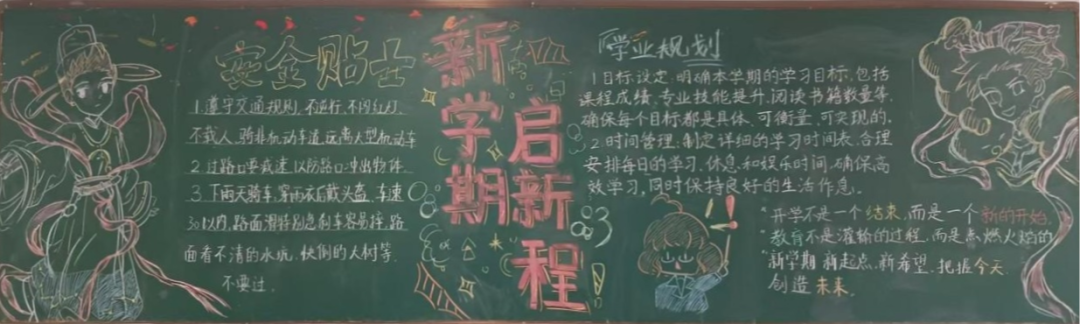 安全贴士
1.遵守交通规则,不逆行,不闯红灯
不载人,骑非机动车道,远离大型机动车
2.过路口要减速,以防路口冲出物体
3.下雨天骑车,穿雨衣们戴头盔,车速
30以内,路面湿特别急刹车容易摔,路
面看不清的水坑,快倒的大树等
不要过.
新学期
启新程
学业规划
1.目标设定:明确本学期的学习目标,包括
课程成绩,专业技能提升,阅读书籍数量等,
确保每个目标都是具体、可衡量、可实现的.
2.时间管理:制定详细的学习时间表,合理
安排每日的学习、休息和娱乐时间,确保高
效学习,同时保持良好的生活作息.
"开学不是一个结束,而是一个新的开始,
"教育不是灌输的过程,而是点燃火焰的
"新学期 新起点,新希望,把握今天,
创造未来.